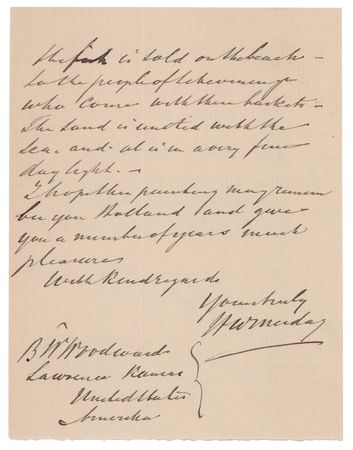 the fish is sold on the beach –
to the people of Scheveningen
who come with their baskets –
The sand is united with the
sea and al is in a very fine
day light. –
I hope the painting may remem
ber you Holland and give
you a number of years much
pleasures
With kind regards
Yours truly
HWMesdag
B W Woodward
Lawrence Kansas
United States
Amerika